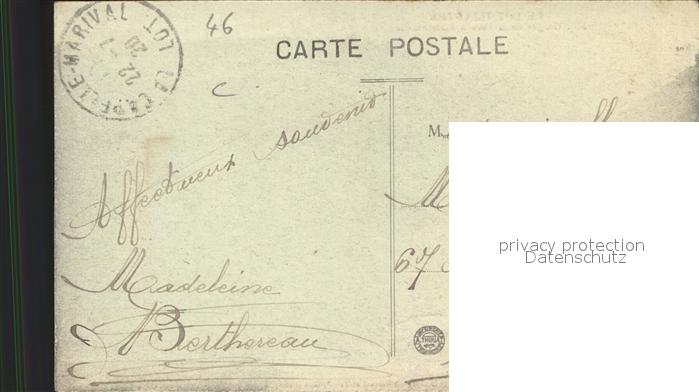 LACAPELLE-MARIVAL LOT
22 - 7
20
46
CARTE POSTALE
C
Affectueux souvenir
M
M
67
Madeleine
Berthereau
privacy protection
Datenschutz